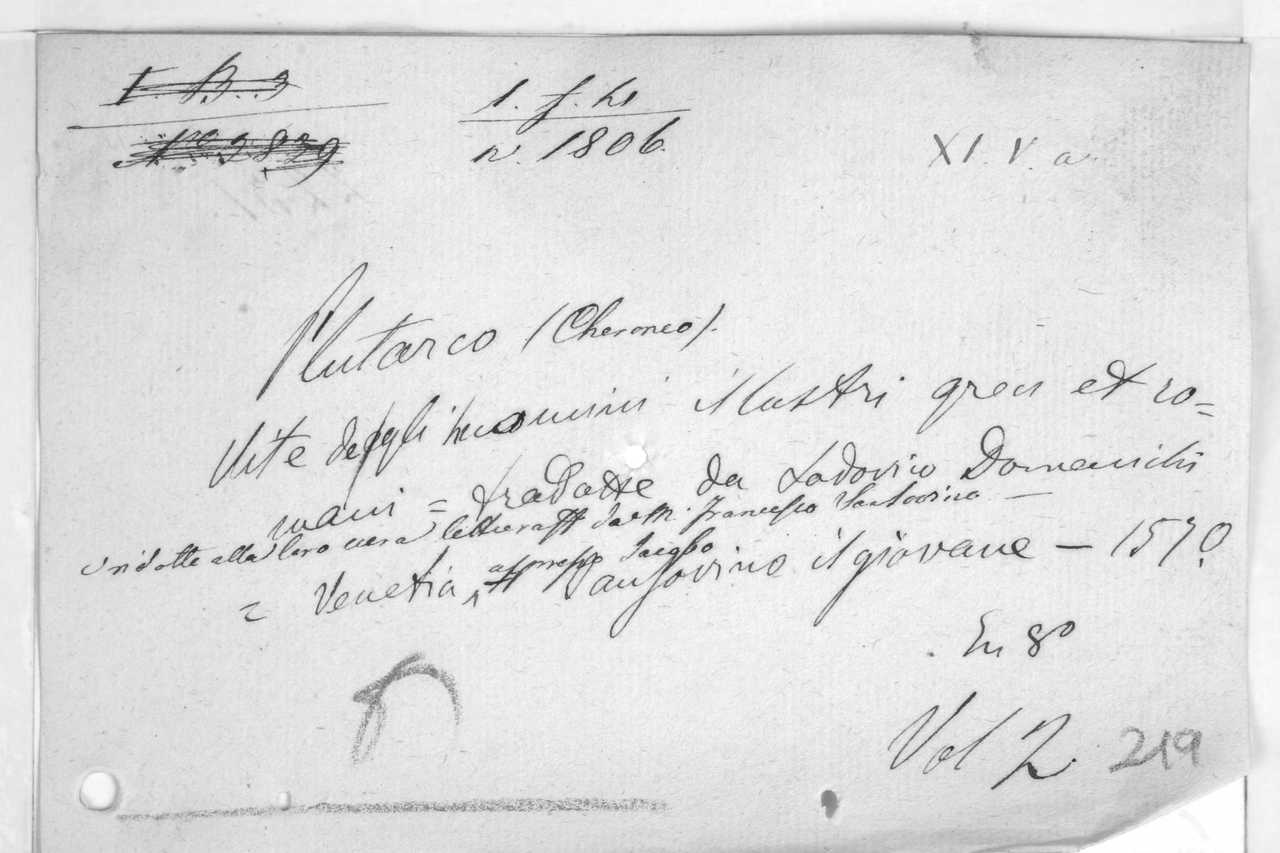 I. B. 9
Nº 2829
1. f. h1
n. 1806
XI. V. a
Plutarco (Cheroneo).
Vite degli huomini illustri greci et ro=
mani = tradotte da Lodovico Domenichi
ridotte alla loro vera da M. Francesco Sansovino —
appresso Jacopo
= Venetia, Sansovino il giovane — 1570
En 8º
Vol 2 219